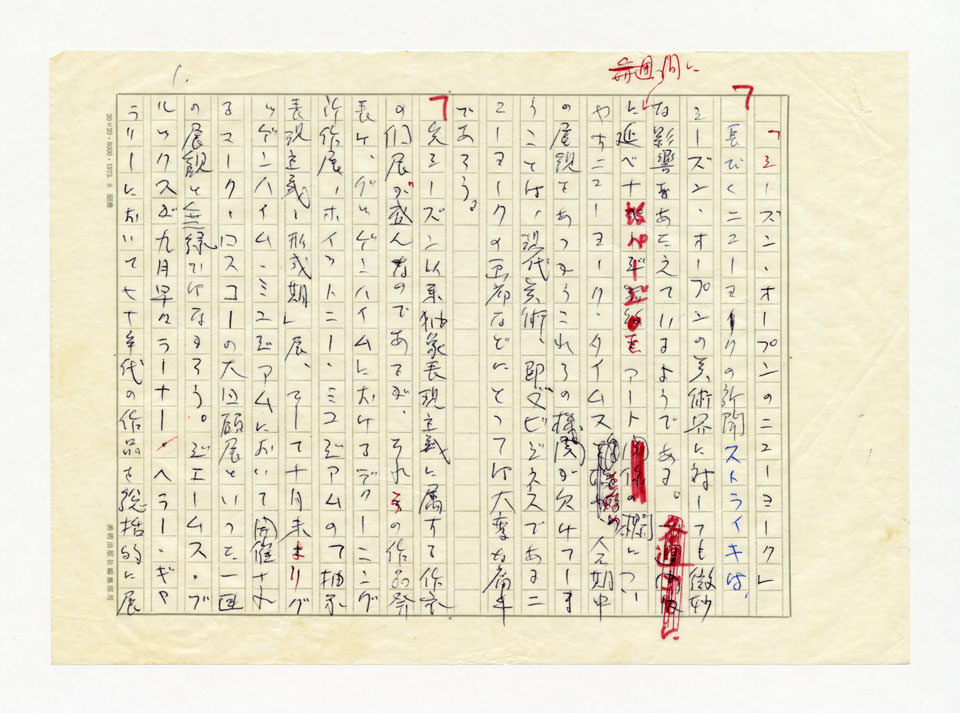 1.
毎週間に
「シーズン・オープンのニューヨーク」
長びくニューヨークの新聞ストライキは、
シーズン・オープンの美術界に対しても微妙
な影響をあたえているようである。
に延べ アート
やすニューヨーク・タイムス 会期中
の展観
うことは、現代美術、即ビジネスであるニ
ューヨークの画廊などにとっては大変な痛手
であろう。
先シーズン以来抽象表現主義に属する作家
の個展が盛んなのであるが、それらの作品祭
長け、グッゲンハイムにおけるデクーニング
新作展、ホイットニー・ミュージアムの「抽象
表現主義ー形式期」展、そして十月末よりグ
ッゲンハイム・ミュージアムにおいて開催され
るマーク・ロスコーの大回顧展といった一連
の展観と無縁ではなかろう。ジェームス・ブ
ルックスが九月早々ラーナー・ヘラー・ギャ
ラリーにおいて七十年代の作品を総括的に展
20×20・8000・1973.
美術出版社編集部用